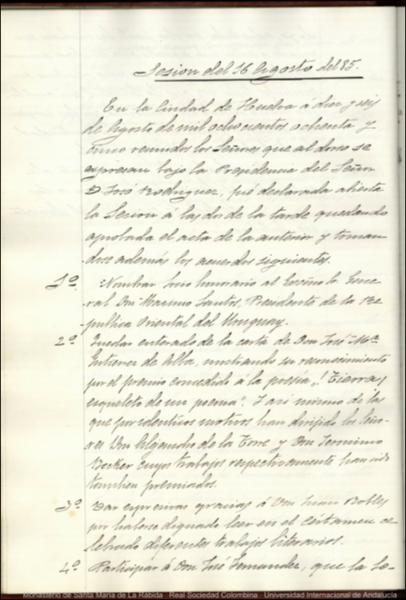 Sesion del 16 Agosto del 85.
En la Ciudad de Huelva á diez y seis
de Agosto de mil ochocientos ochenta y
cinco reunidos los Señores que al dorso se
expresan bajo la Presidencia del Señor
D. José Rodriguez, fué declarada abierta
la Sesion á las dos de la tarde quedando
aprobada el acta de la anterior y toman
dose además los acuerdos siguientes.
1º Nombrar Socio honorario al Excmo Sr. Gene
ral Don Maximo Santos, Presidente de la Re
publica Oriental del Uruguay.
2º Quedar enterado de la carta de Don José Mª
Gutierrez de Alba, mostrando su reconocimiento
por el premio concedido á la poesia, "¡Tierra,
esqueleto de un poema", y asi mismo de las
que por identicos motivos han dirijido los Seño
res Don Alejandro de la Torre y Don Jeronimo
Becker cuyos trabajos respectivamente han sido
tambien premiados.
3º Dar expresivas gracias á Don Juan Robles
por haberse dignado leer en el Certamen ce
lebrado diferentes trabajos literarios.
4º Participar á Don José Fernandez, que la So-
Monasterio de Santa María de La Rábida . Real Sociedad Colombina . Universidad Internacional de Andalucía